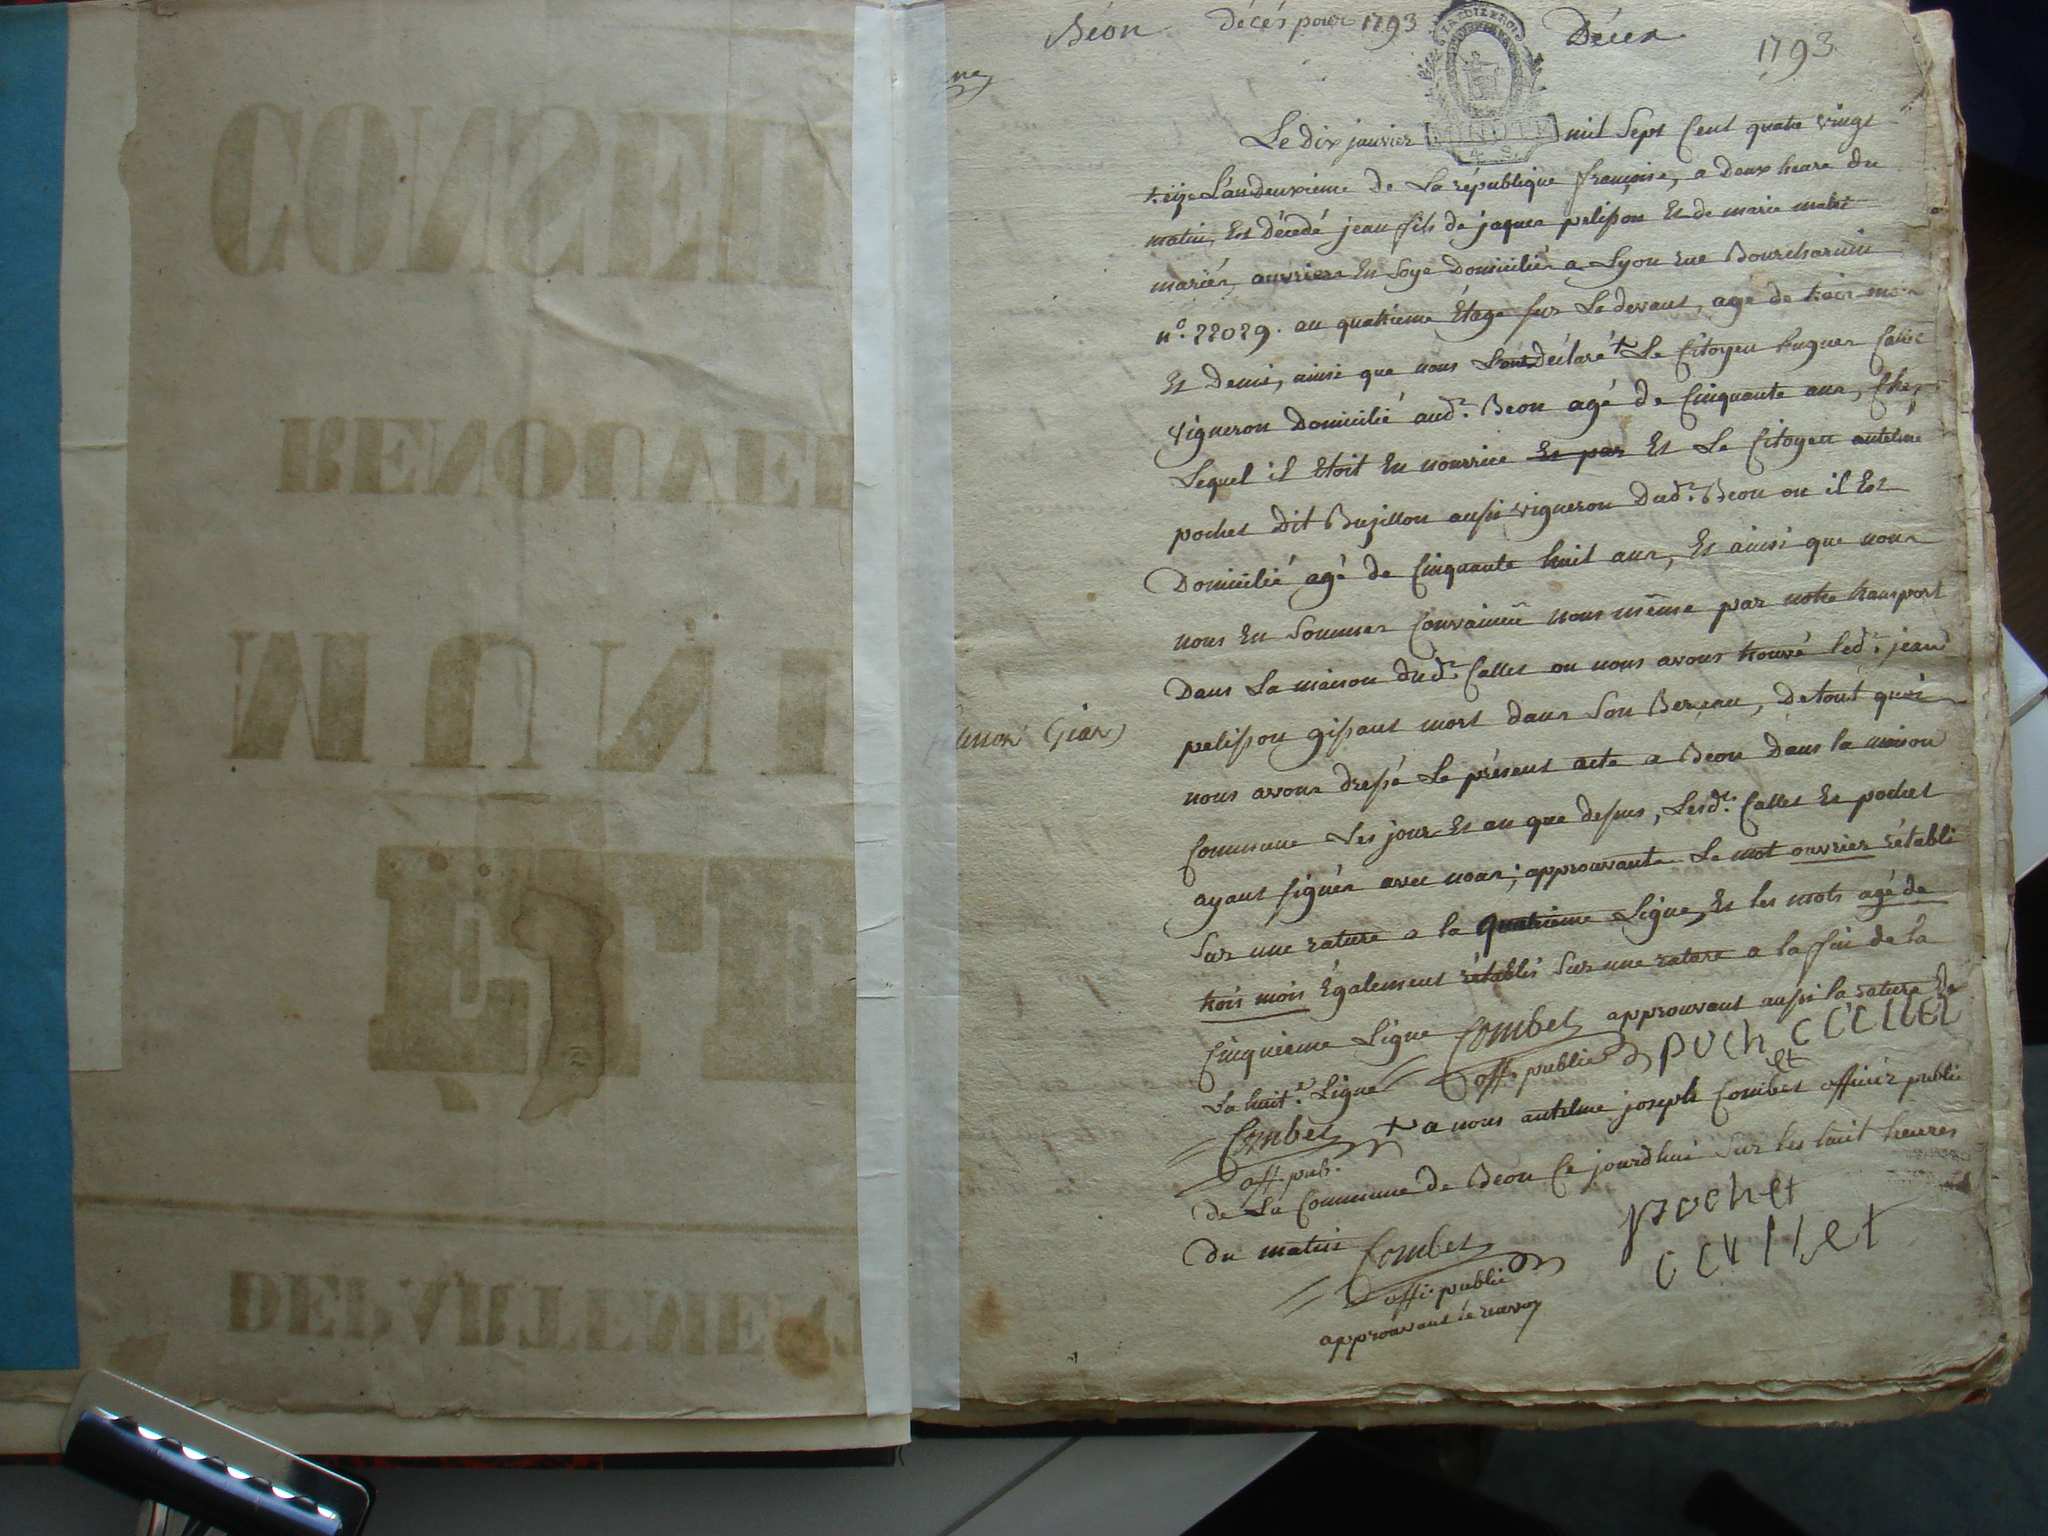 CONSEIL
RENOUVEL
MUNI
ET
DEPARTEMEN
Béon décès pour 1793 Décès 1793
MINUTE
4 S.
Le dix janvier mil Sept Cent quatre vingt
treize L'an deuxieme de La république françoise, a deux heure du
matin, Est Décédé jean fils de jaques pelisson Et de marie malet
mariés, ouvriers En Soye Domiciliés a Lyon rue Bourchanin
n.º 22029. au quatrieme Étage sur Le devant, age de trois mois
Et Demi, ainsi que nous L'ont déclaré + Le Citoyen hugues Callet
vigneron Domicilié aud.t Beon agé de Cinquante ans, Chez
Lequel il Etoit En nourrice Et par Et Le Citoyen antelme
pochet dit Bujillon aussi vigneron Dud.t Beon ou il Est
Domicilié agé de Cinquante huit ans, Et ainsi que nous
nous En Sommes Convaincû nous même par notre transport
Dans La maison dud.t Callet ou nous avons trouvé led.t jean
pelisson gissant mort dans Son Berceau, de tout quoi
nous avons dressé Le présent acte a Beon Dans la maison
Commune Les jour Et an que dessus, Lesd.ts Callet Et pochet
ayant signés avec nous; approuvants Le mot ouvrier rétabli
Sur une rature a la quatrieme Ligne, Et les mots agé de
trois mois Également rétablis Sur une rature a la fin de la
Cinquieme Ligne Combet approuvant aussi la rature de
La huit.e Ligne off. public poch et CCllet
Combet + a nous antelme joseph Combet officier public
off. pub.
de La Commune de Béon Ce jourdhui Sur les huit heures
du matin Combet pochet
offi. public Ccullet
approuvant le renvoy